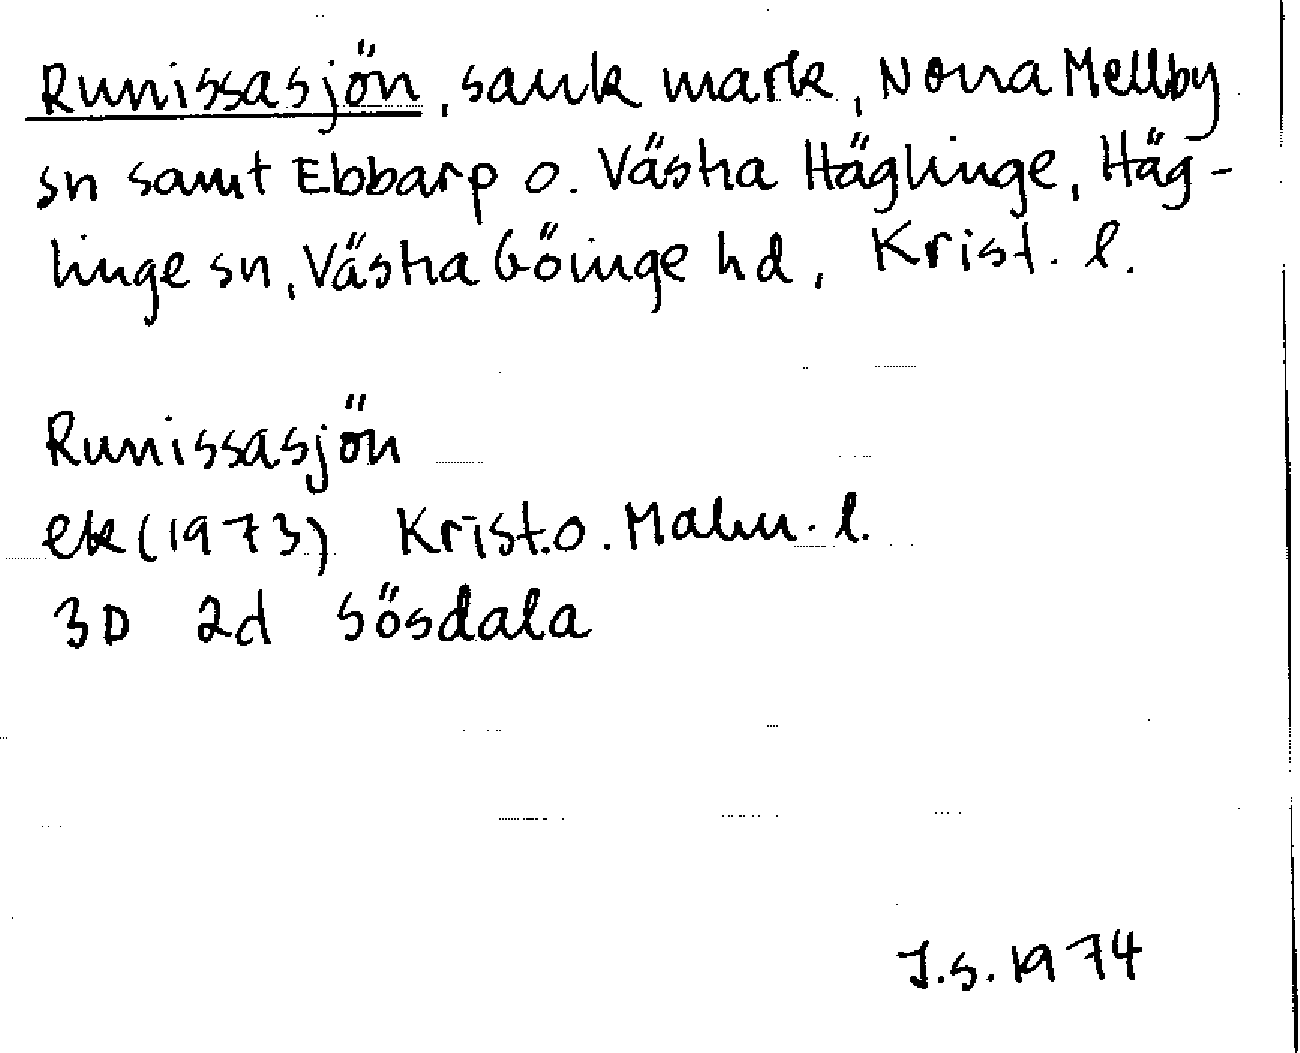 Runissasjön, sank mark, Norra Mellby
sn samt Ebbarp o. Västra Häglinge, Häg-
linge sn, Västra Göinge hd, Krist. l.
Runissasjön
ek (1973) Krist. o. Malm. l.
3D 2d Sösdala
J.S. 1974